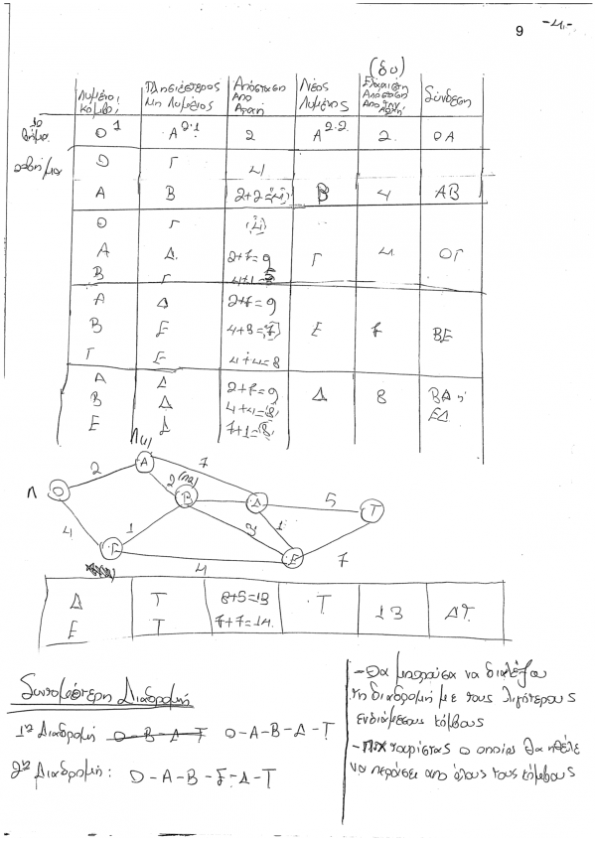 9 -4-
(δυ)
Λυμένοι κόμβοι | Πλησιέστερος μη λυμένος | Απόσταση από Αρχή | Νέος Λυμένος | Ελάχιστη Απόσταση Από την Αρχή | Σύνδεση
1ο βήμα | Ο 1 | Α 2.1 | 2 | Α 2.2 | 2 | ΟΑ
2ο βήμα | Ο | Γ | 4
Α | Β | 2+2=4 | Β | 4 | ΑΒ
Ο | Γ | 4
Α | Δ | 2+7=9 | Γ | 4 | ΟΓ
Β | Γ | 4+1=5
Α | Δ | 2+7=9
Β | Ε | 4+3=7 | Ε | 7 | ΒΕ
Γ | Ε | 4+4=8
Α | Δ | 2+7=9
Β | Δ | 4+4=8 | Δ | 8 | ΒΔ ή
Ε | Δ | 7+1=8 | ΕΔ
2 Α 7
Ο 2 Β Δ 5 Τ
4 1 3 1
Γ Ε 7
4
Δ | Τ | 8+5=13 | Τ | 13 | ΔΤ
Ε | Τ | 7+7=14
Συντομότερη Διαδρομή
1η Διαδρομή Ο-Β-Δ-Τ Ο-Α-Β-Δ-Τ
2η Διαδρομή: Ο-Α-Β-Ε-Δ-Τ
-Θα μπορούσα να διαλέξω
τη διαδρομή με τους λιγότερους
ενδιάμεσους κόμβους
-πχ τουρίστας ο οποίος θα ήθελε
να περάσει από όλους τους κόμβους